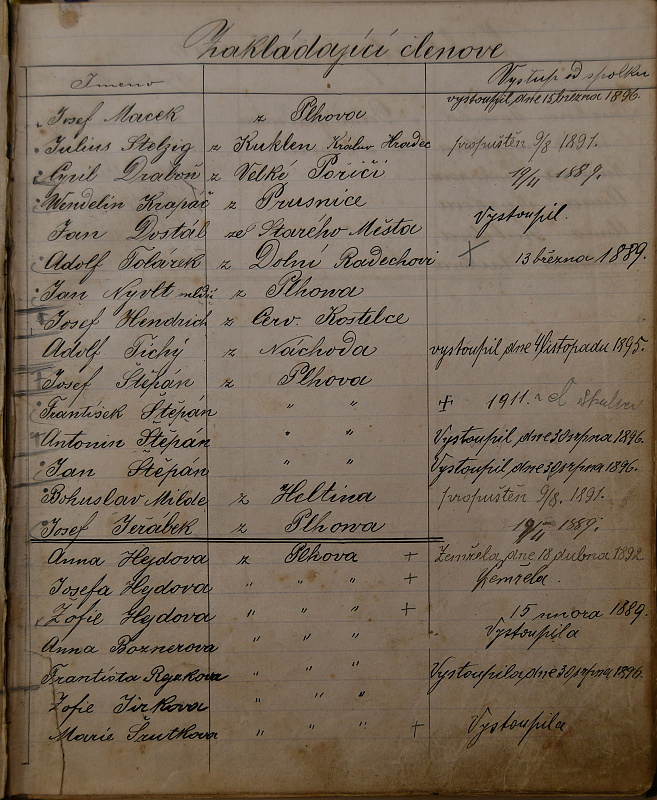 Zakládající členové
Jmeno Výstup od spolku
Josef Macek z Plhova vystoupil dne 15 března 1896.
Julius Stelzig z Kuklen Králův Hradec propuštěn 9/8 1891.
Cyril Draboň z Velké Poříčí 19/II 1889.
Wendelin Krapáč z Prusnice
Jan Dostál ze Starého Města Vystoupil.
Adolf Tolarek z Dolní Radechovi + 13 března 1889.
Jan Nyvlt mladší z Plhowa
Josef Hendrich z Červ. Kostelce
Adolf Tichý z Náchoda vystoupil dne 4 listopadu 1895.
Josef Štěpán z Plhova
František Štěpán " " + 1911.
Antonin Štěpán " " Vystoupil dne 30 srpna 1896.
Jan Štěpán " " Vystoupil dne 30 srpna 1896.
Bohuslav Milde z Heltina propuštěn 9/8. 1891.
Josef Jerábek z Plhowa 19/II 1889.
Anna Hejdova z Plhova + Zemřela dne 18 dubna 1892
Josefa Hejdova " " " + Zemřela.
Žofie Hejdova " " " + 15 unora 1889.
Anna Boznerova " " " Vystoupila
Františka " " " Vystoupila dne 30 srpna 1896.
Žofie Jirkova " " "
Marie Šrutkova " " " + Vystoupila